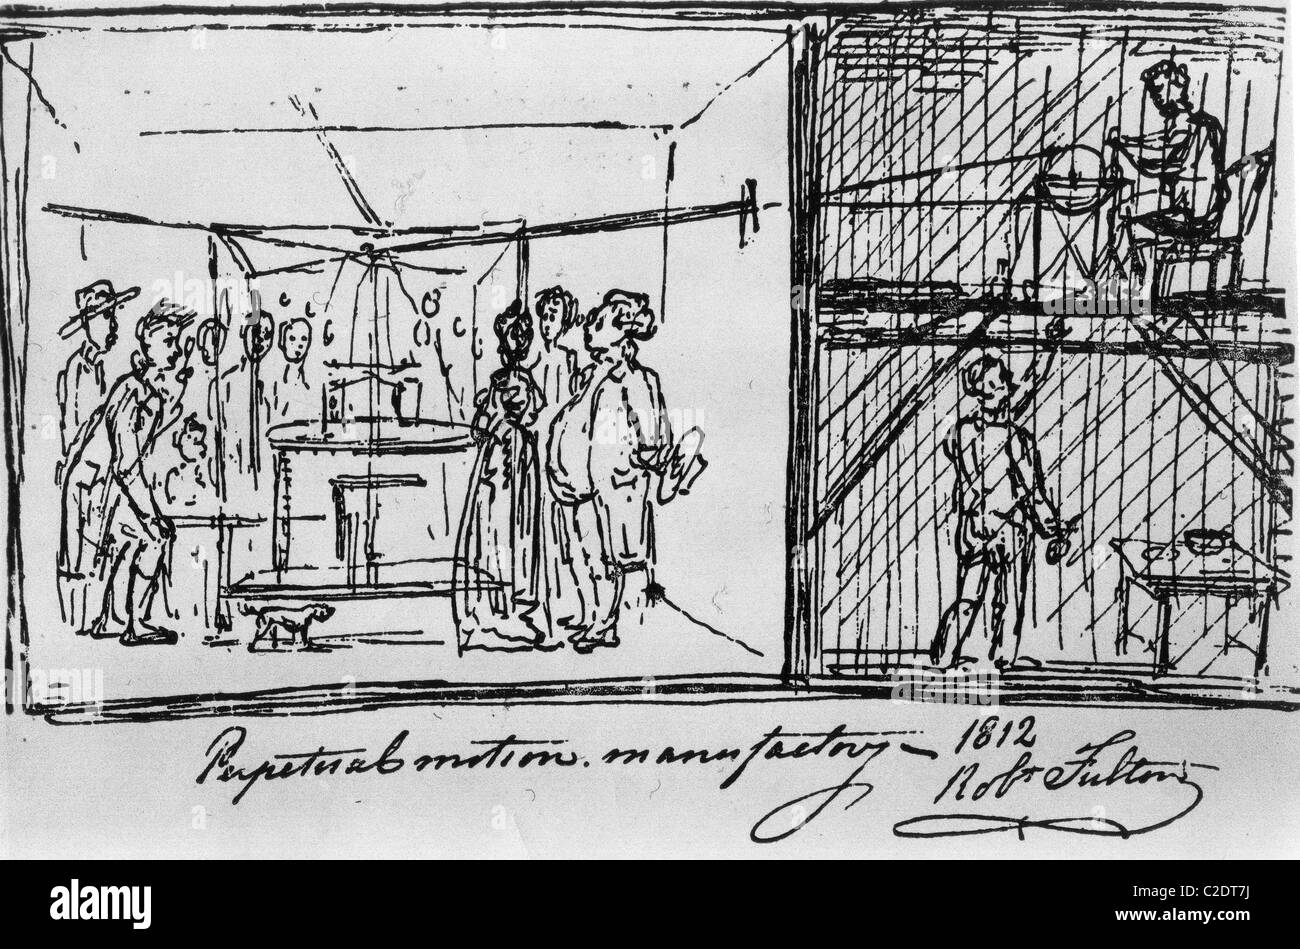 Perpetual motion. manufactory – 1812
Robt Fulton
alamy
Image ID: C2DT7J
www.alamy.com